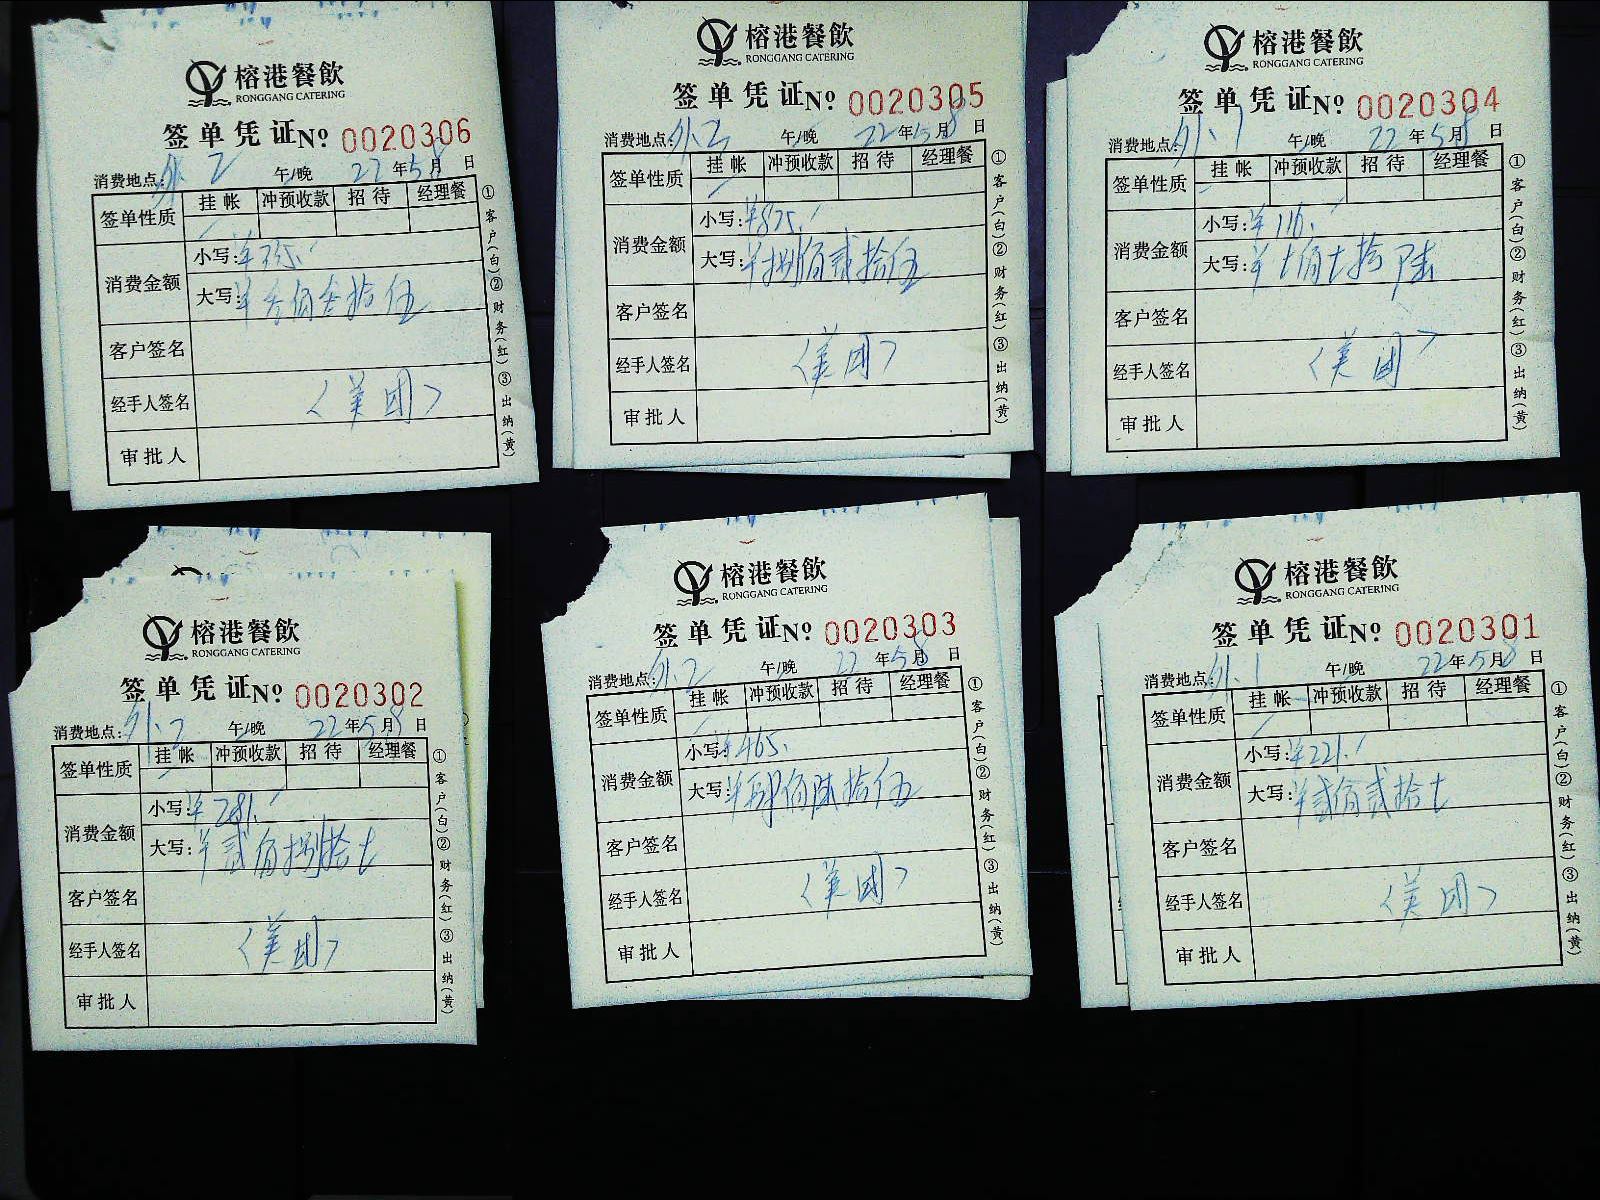 榕港餐飲
RONGGANG CATERING
签单凭证 Nº 0020306
消费地点: 外.2 午/晚 22年5月8日
签单性质 挂帐 冲预收款 招待 经理餐
消费金额 小写: ¥335.
大写: ¥叁佰叁拾伍
客户签名
经手人签名 〈美团〉
审批人
①客户(白)②财务(红)③出纳(黄)
榕港餐飲
RONGGANG CATERING
签单凭证 Nº 0020305
消费地点: 外.2 午/晚 22年5月8日
签单性质 挂帐 冲预收款 招待 经理餐
消费金额 小写: ¥825.
大写: ¥捌佰贰拾伍
客户签名
经手人签名 〈美团〉
审批人
①客户(白)②财务(红)③出纳(黄)
榕港餐飲
RONGGANG CATERING
签单凭证 Nº 0020304
消费地点: 外.1 午/晚 22年5月8日
签单性质 挂帐 冲预收款 招待 经理餐
消费金额 小写: ¥116.
大写: ¥ 佰 拾陆
客户签名
经手人签名 〈美团〉
审批人
①客户(白)②财务(红)③出纳(黄)
榕港餐飲
RONGGANG CATERING
签单凭证 Nº 0020302
消费地点: 外.2 午/晚 22年5月8日
签单性质 挂帐 冲预收款 招待 经理餐
消费金额 小写: ¥281.
大写: ¥贰佰捌拾
客户签名
经手人签名 〈美团〉
审批人
①客户(白)②财务(红)③出纳(黄)
榕港餐飲
RONGGANG CATERING
签单凭证 Nº 0020303
消费地点: 外.2 午/晚 22年5月8日
签单性质 挂帐 冲预收款 招待 经理餐
消费金额 小写: ¥465.
大写: ¥肆佰陆拾伍
客户签名
经手人签名 〈美团〉
审批人
①客户(白)②财务(红)③出纳(黄)
榕港餐飲
RONGGANG CATERING
签单凭证 Nº 0020301
消费地点: 外.1 午/晚 22年5月8日
签单性质 挂帐 冲预收款 招待 经理餐
消费金额 小写: ¥221.
大写: ¥贰佰贰拾
客户签名
经手人签名 〈美团〉
审批人
①客户(白)②财务(红)③出纳(黄)